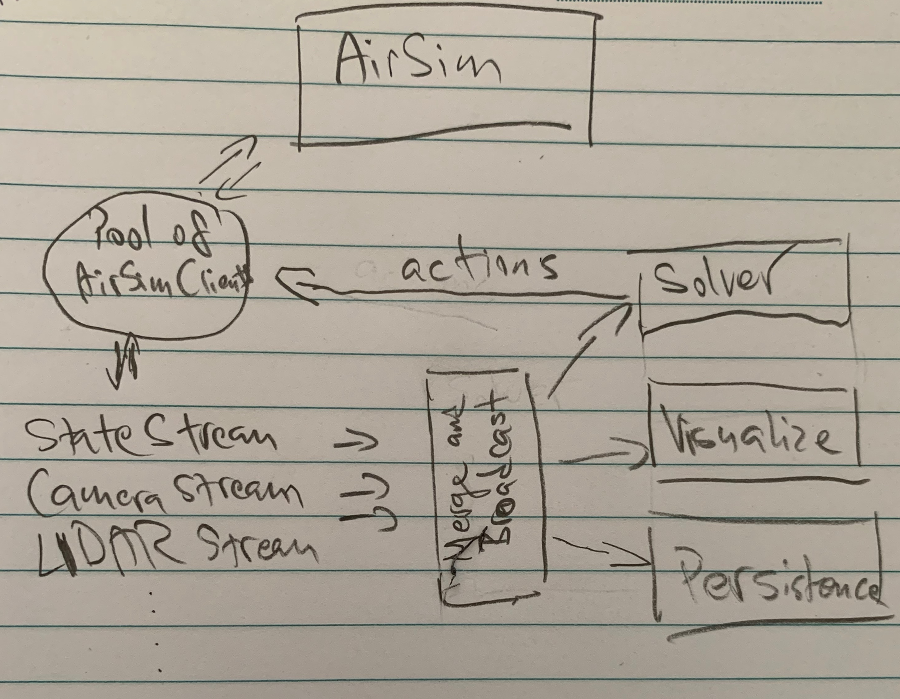 AirSim
Pool of
AirSimClients
actions
Solver
State Stream
Camera Stream
LIDAR Stream
Merge and
Broadcast
Visualize
Persistence